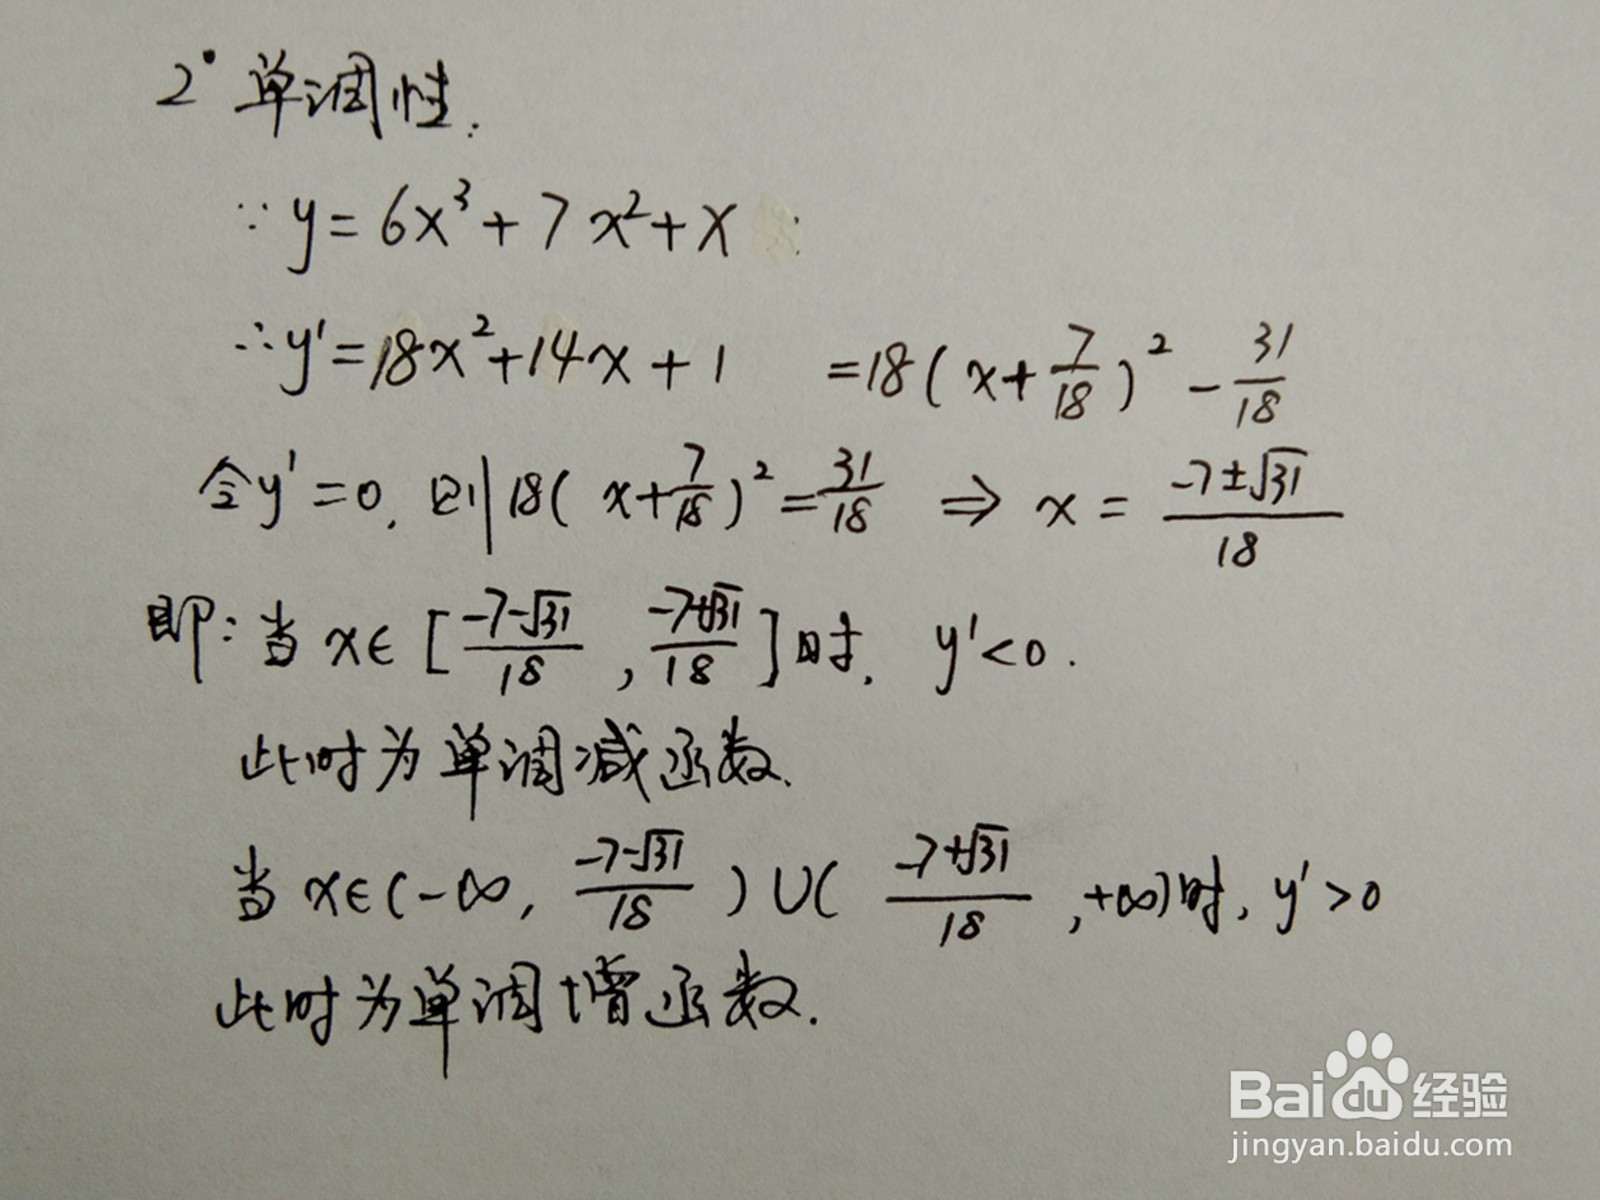 2° 单调性:
∵ y = 6x³ + 7x² + x
∴ y' = 18x² + 14x + 1 = 18(x + 7/18)² - 31/18
令 y' = 0, 则 18(x + 7/18)² = 31/18 ⇒ x = (-7±√31)/18
即: 当 x∈[(-7-√31)/18, (-7+√31)/18]时, y'<0.
此时为单调减函数.
当 x∈(-∞, (-7-√31)/18)∪((-7+√31)/18, +∞)时, y'>0
此时为单调增函数.
Baidu 经验
jingyan.baidu.com